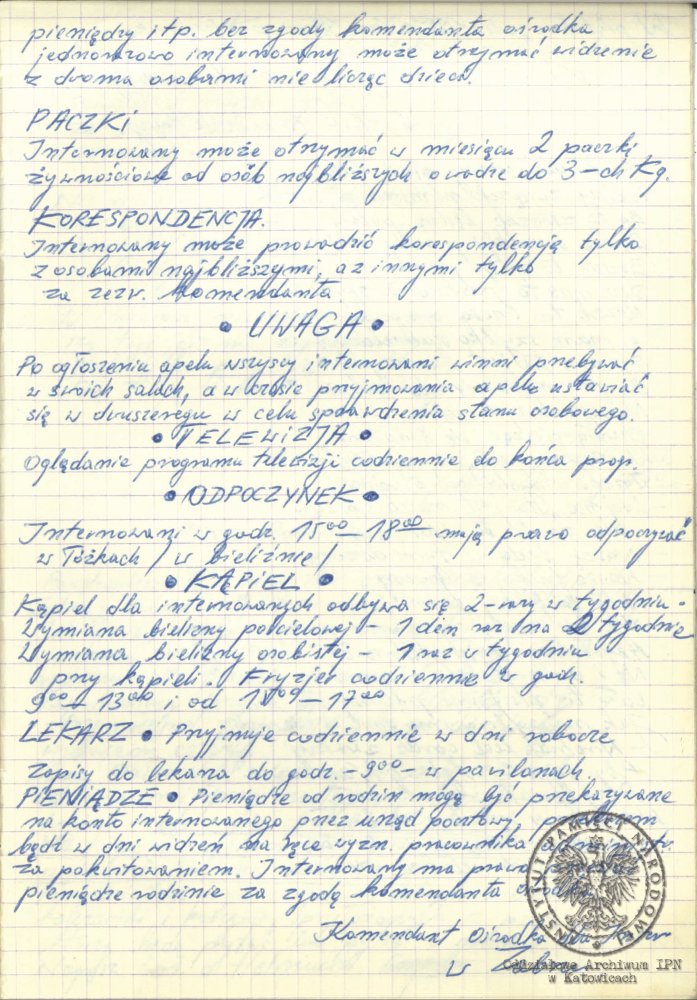 pieniędzy itp. bez zgody komendanta ośrodka
jednorazowo internowany może otrzymać widzenie
z dwoma osobami nie licząc dzieci.
PACZKI
Internowany może otrzymać w miesiącu 2 paczki
żywnościowe od osób najbliższych o wadze do 3-ch Kg.
KORESPONDENCJA.
Internowany może prowadzić korespondencję tylko
z osobami najbliższymi, a z innymi tylko
za zezw. komendanta.
• UWAGA •
Po ogłoszeniu apelu wszyscy internowani winni przebywać
w swoich salach, a w czasie przyjmowania apelu ustawiać
się w dwuszeregu w celu sprawdzenia stanu osobowego.
• TELEWIZJA •
Oglądanie programu telewizji codziennie do końca progr.
• ODPOCZYNEK •
Internowani w godz. 15⁰⁰ – 18⁰⁰ mają prawo odpoczywać
w łóżkach / w bieliźnie /
• KĄPIEL •
Kąpiel dla internowanych odbywa się 2-razy w tygodniu.
Wymiana bielizny pościelowej – 1 dzień raz na 2 tygodnie
Wymiana bielizny osobistej – 1 raz w tygodniu
przy kąpieli. Fryzjer codziennie w godz.
9⁰⁰ – 13⁰⁰ i od – 17⁰⁰
LEKARZ • Przyjmuje codziennie w dni robocze
Zapisy do lekarza do godz. – 9⁰⁰ – w pawilonach
PIENIĄDZE • Pieniądze od rodzin mogą być przekazywane
na konto internowanego przez urząd pocztowy,
bądź w dni widzeń na ręce wyzn. pracownika
za pokwitowaniem. Internowany ma prawo
pieniądze rodzinie za zgodą komendanta
Komendant Ośrodka
w
INSTYTUT PAMIĘCI NARODOWEJ
Oddziałowe Archiwum IPN
w Katowicach